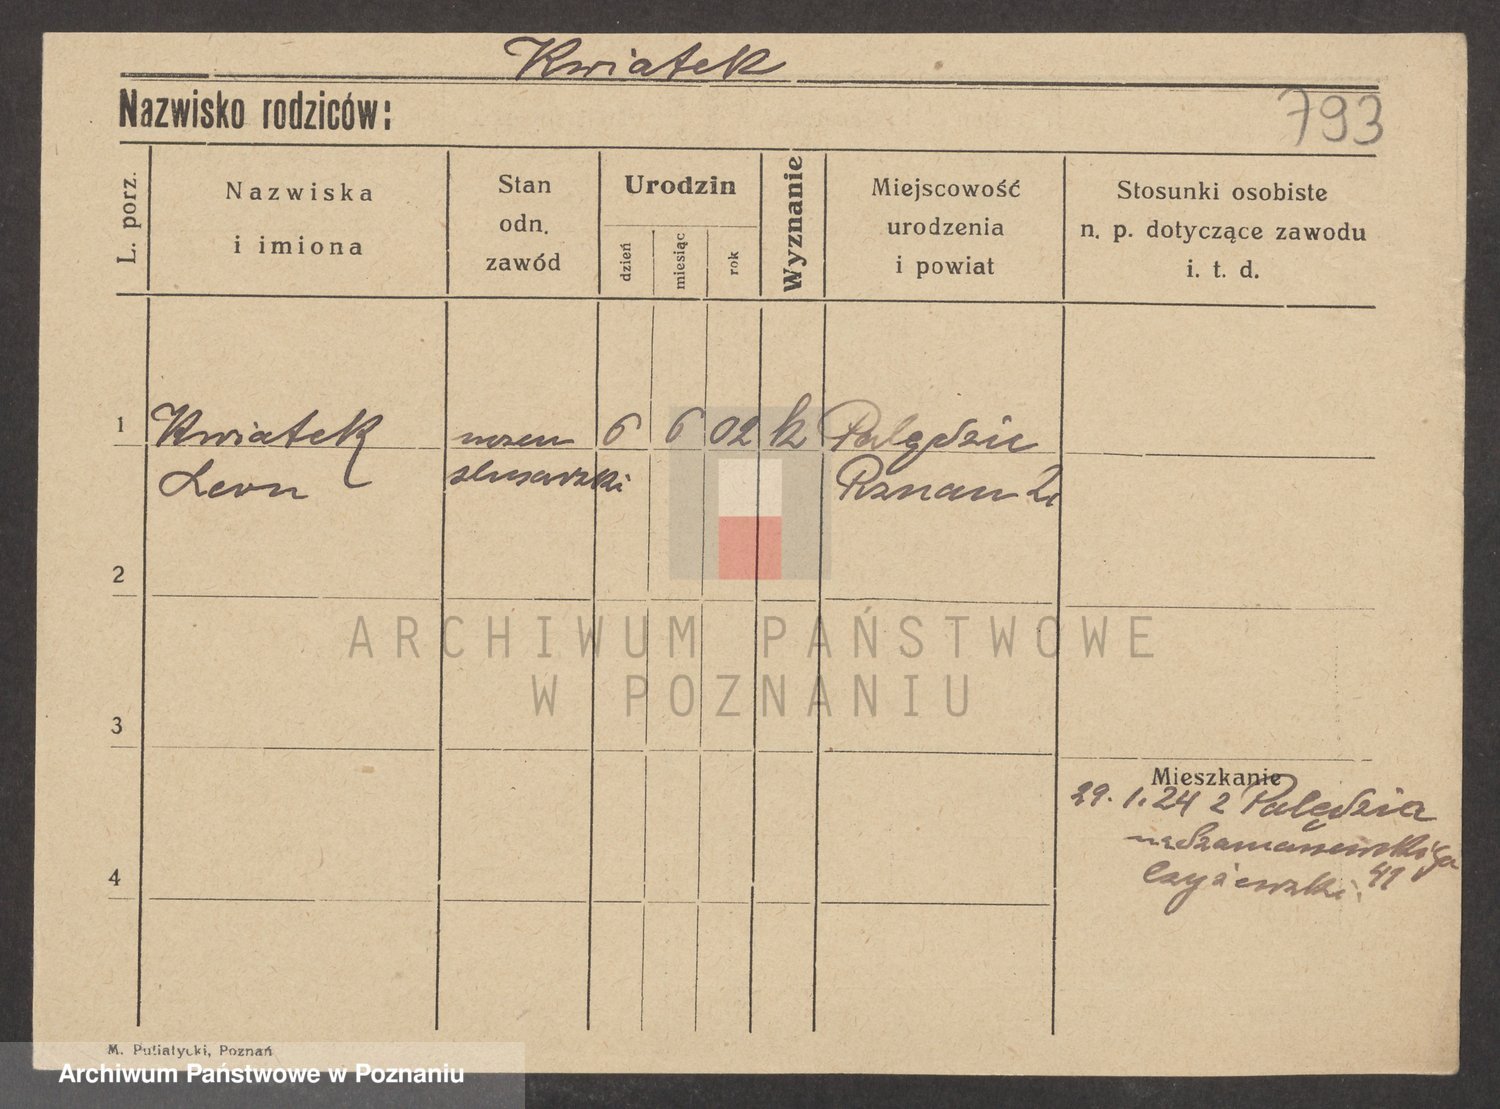 Kwiatek
Nazwisko rodziców:
793
L. porz.
Nazwiska
i imiona
Stan
odn.
zawód
Urodzin
dzień
miesiąc
rok
Wyznanie
Miejscowość
urodzenia
i powiat
Stosunki osobiste
n. p. dotyczące zawodu
i. t. d.
1 Kwiatek uczeń 6 6 02 k Palędzie
Leon ślusarski Poznań Za
2
ARCHIWUM PAŃSTWOWE
W POZNANIU
3
Mieszkanie
29. 1. 24 z Palędzia
41
4
M. Putiatycki, Poznań
Archiwum Państwowe w Poznaniu